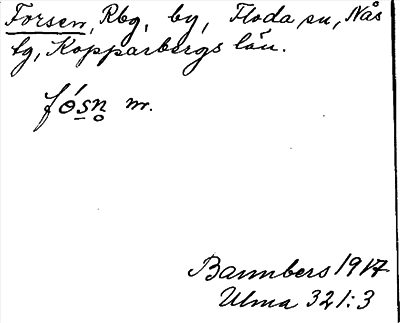 Forsen, Rbg, by, Floda sn, Nås
tg, Kopparbergs län.
fó̱sn̥ m.
Bannbers 1917
Ulma 321:3